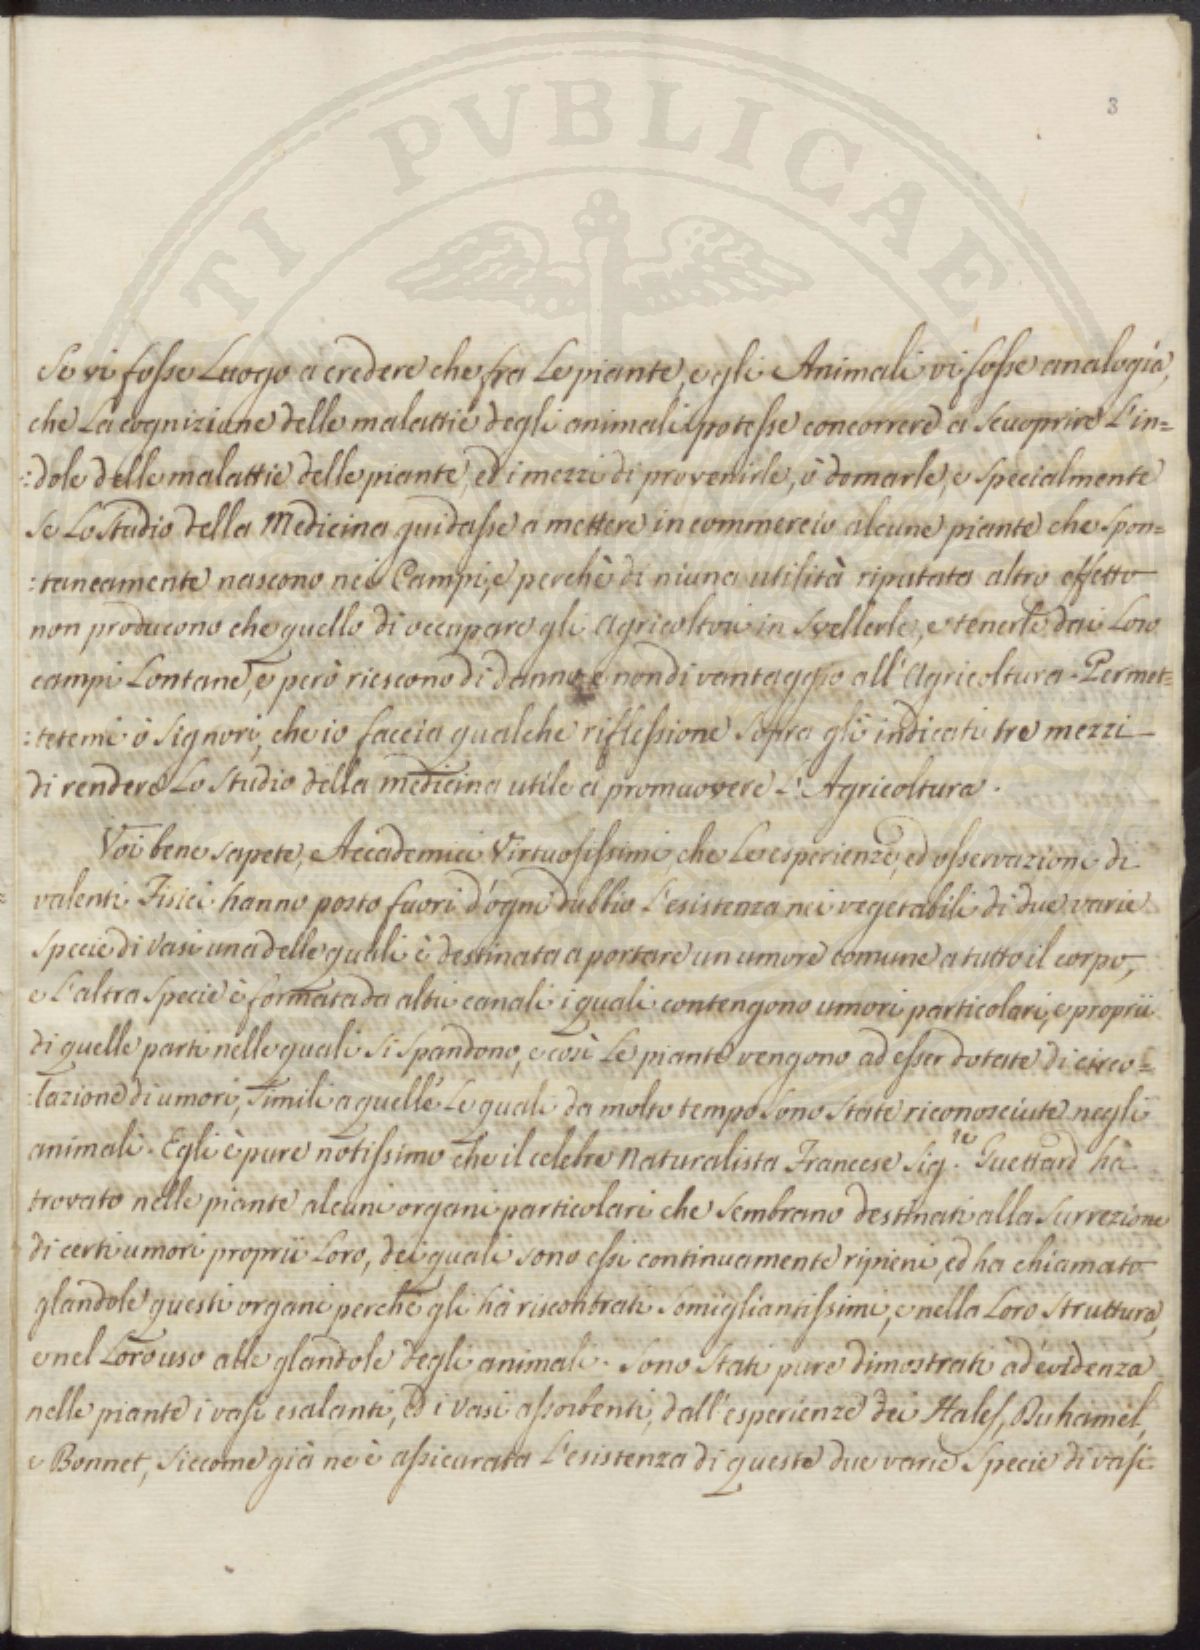 3
Se vi fosse Luogo a credere che fra Le piante, e gli Animali vi fosse analogìa,
che La cognizione delle malattie degli animali potesse concorrere a scuoprire L'in=
:dole delle malattie delle piante, ed i mezzi di provenirle, ò domarle, e specialmente
se Lo studio della Medicina guidasse a mettere in commercio alcune piante che spon=
:taneamente nascono nei Campi, e perchè di niuna utilità riputata altro effetto
non producono che quello di occupare gli Agricoltori in Svellerle, e tenerle dai Loro
campi Lontane, e però riescono di danno e non di vantaggio all'Agricoltura. Permet=
:tetemi ò Signori, che io faccia qualche riflessione sopra gli indicati tre mezzi
di rendere Lo studio della medicina utile a promuovere L'Agricoltura.
Voi bene sapete, Accademici Virtuosissimi, che Le esperienze, ed osservazioni di
valenti Fisici hanno posto fuori d'ogni dubbio L'esistenza nei vegetabili di due varie
specie di Vasi una delle quali è destinata a portare un umore comune a tutto il corpo,
e L'altra specie è formata da altri canali i quali contengono umori particolari, e proprii
di quelle parti nelle quali si spandono, e così Le piante vengono ad esser dotate di circo=
:lazione di umori, simili a quelle Le quali da molto tempo sono state riconosciute negli
animali. Egli è pure notissimo che il celebre Naturalista Francese Sig.re Guettard hà
trovato nelle piante alcuni organi particolari che sembrano destinati alla Surrezione
di certi umori proprii Loro, dei quali sono essi continuamente ripieni, ed ha chiamato
glandole questi organi perchè gli hà riscontrati Somigliantissimi, e nella Loro struttura,
e nel Loro uso alle glandole degli animali. Sono Stati pure dimostrati ad evidenza
nelle piante i vasi esalanti, ed i Vasi assorbenti, dall'esperienze dei Hales, Duhamel,
e Bonnet, siccome già ne è assicurata L'esistenza di queste due varie Specie di vasi
TI PVBLICAE